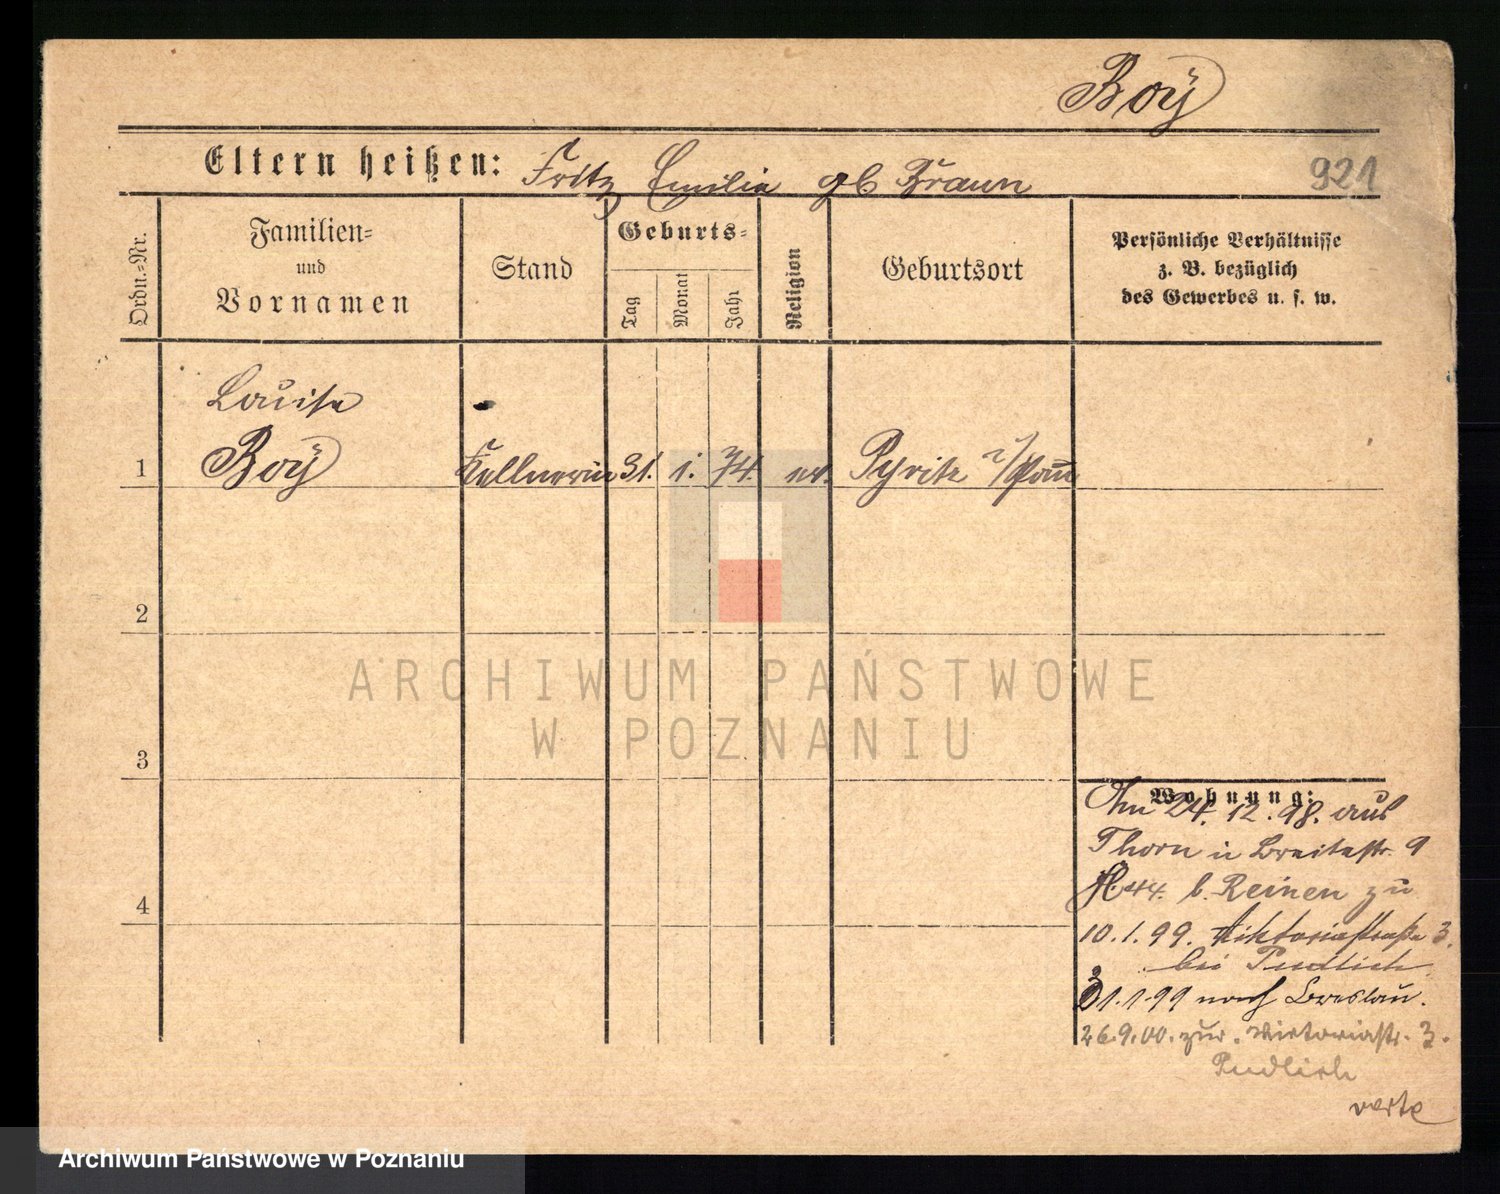 Boÿ
Eltern heißen: Fritz Emilie gb Braun
921
Ordn.-Nr.
Familien-
und
Vornamen
Stand
Geburts-
Tag
Monat
Jahr
Religion
Geburtsort
Persönliche Verhältnisse
z. B. bezüglich
des Gewerbes u. s. w.
Louise
1 Boÿ Kellnerin 31. 1. 74. ev. Pyritz i/Pom
2
3
4
Wohnung:
Am 24. 12. 98. aus
Thorn in Breitestr. 9
b. Reinen zu
10. 1. 99. Viktoriastraße 3.
bei Pudlich
31.1.99 nach Breslau.
26.9.00. zur. Viktoriastr. 3.
Pudlich
verte
ARCHIWUM PAŃSTWOWE
W POZNANIU
Archiwum Państwowe w Poznaniu